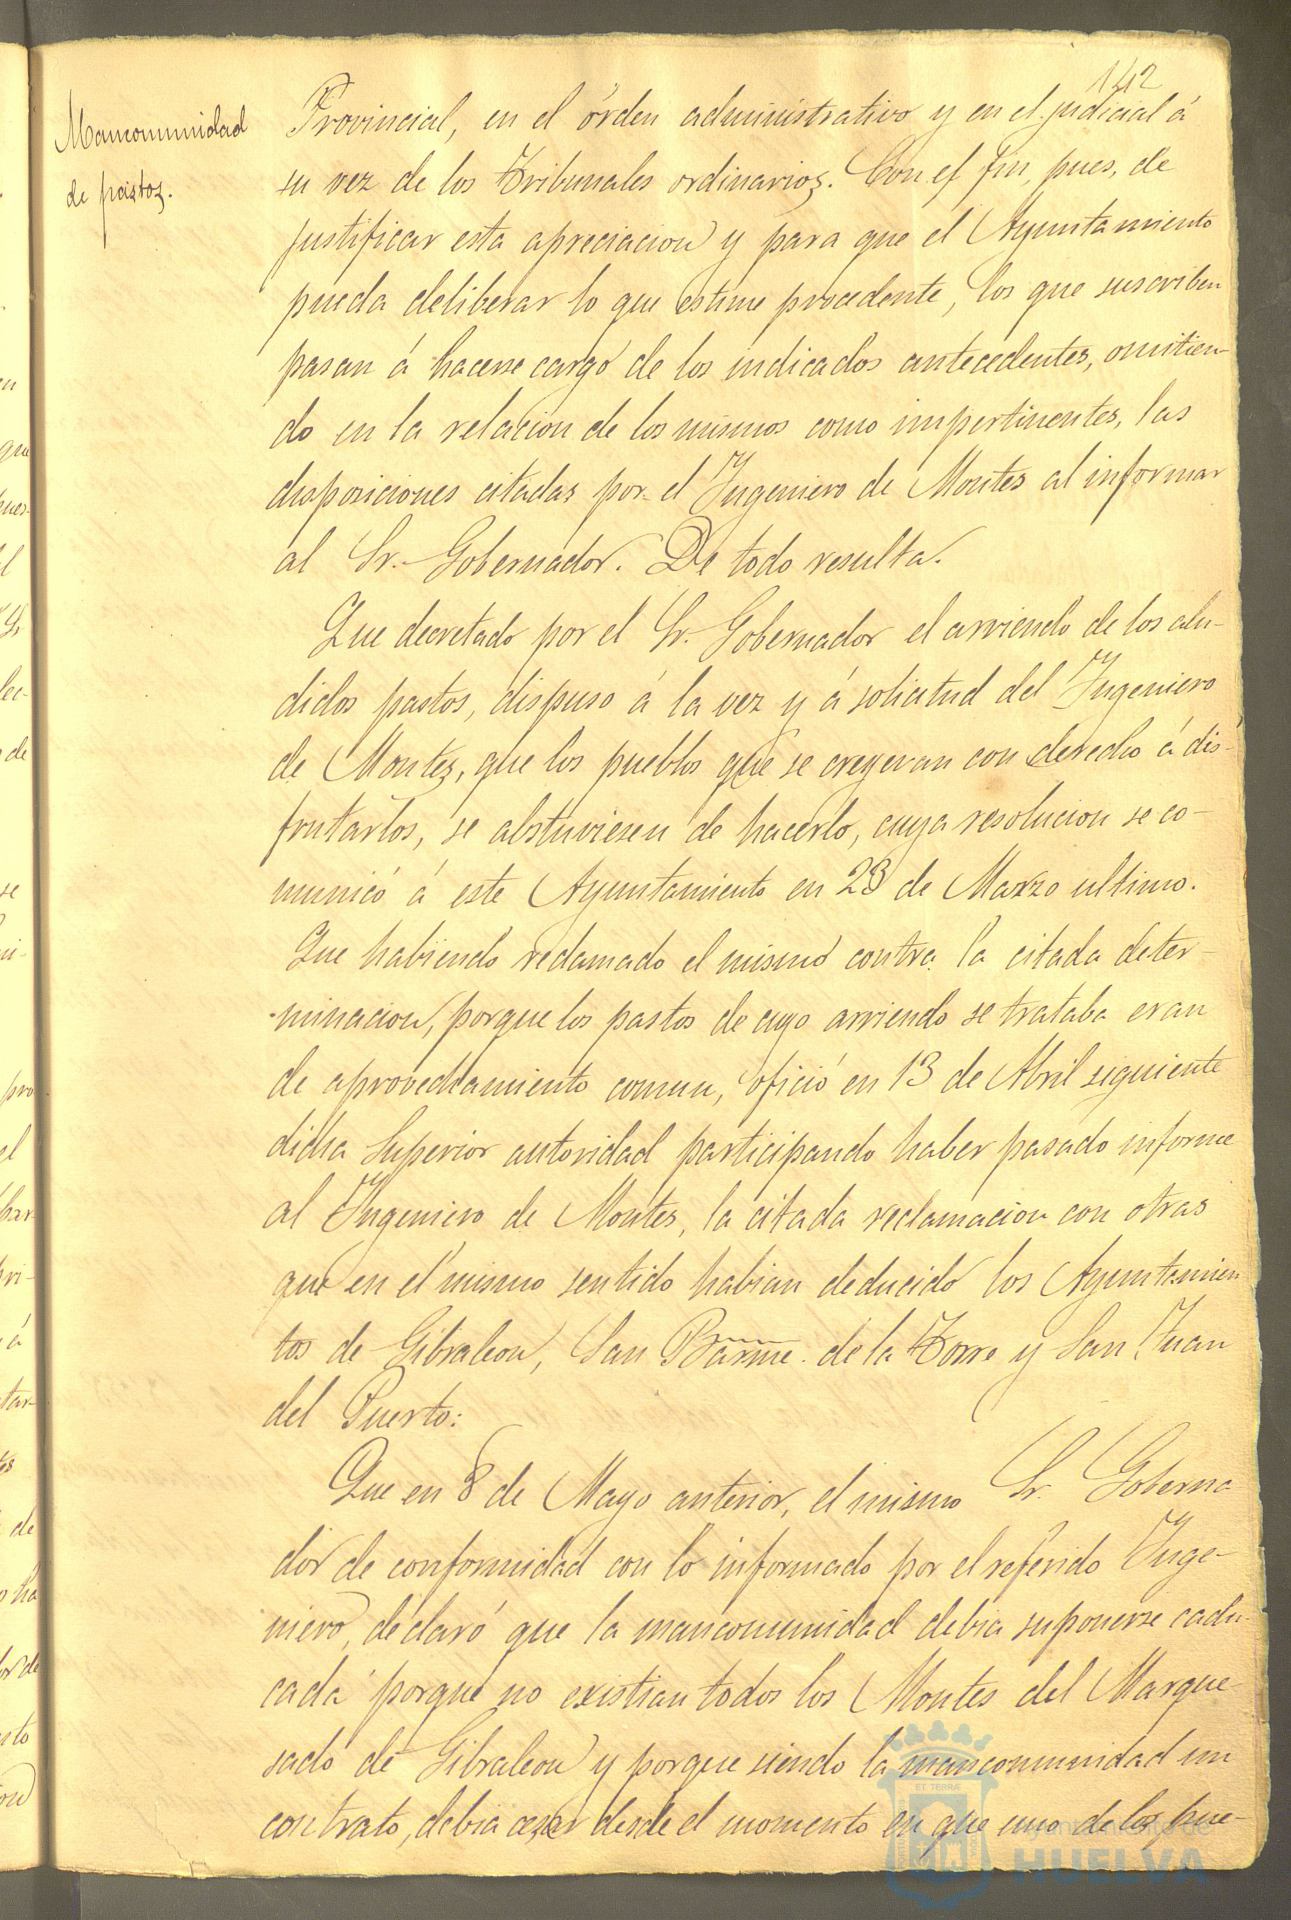 142
Mancomunidad
de pastos.
Provincial, en el órden administrativo y en el judicial á
su vez de los Tribunales ordinarios. Con el fin, pues, de
justificar esta apreciacion y para que el Ayuntamiento
pueda deliberar lo que estime procedente, los que suscriben
pasan á hacerse cargo de los indicados antecedentes, omitien-
do en la relacion de los mismos como impertinentes, las
disposiciones citadas por el Ingeniero de Montes al informar
al Sr. Gobernador. De todo resulta.
Que decretado por el Sr. Gobernador el arriendo de los alu-
didos pastos, dispuso á la vez y á solicitud del Ingeniero
de Montes, que los pueblos que se creyeran con derecho á dis-
frutarlos, se abstuviesen de hacerlo, cuya resolucion se co-
municó á este Ayuntamiento en 23 de Marzo ultimo.
Que habiendo reclamado el mismo contra la citada deter-
minacion, porque los pastos de cuyo arriendo se trataba eran
de aprovechamiento comun, ofició en 13 de Abril siguiente
dicha Superior autoridad participando haber pasado informe
al Ingeniero de Montes, la citada reclamacion con otras
que en el mismo sentido habian deducido los Ayuntamien
tos de Gibraleon, San Barme. de la Torre y San Juan
del Puerto:
Que en 8 de Mayo anterior, el mismo Sr. Goberna
dor de conformidad con lo informado por el referido Inge-
niero, declaró que la mancomunidad debia suponerse cadu-
cada porque no existian todos los Montes del Marque-
sado de Gibraleon y porque siendo la mancomunidad un
contrato, debia cesar desde el momento en que uno de los pue-
ET TERRÆ
Ayuntamiento de
HUELVA